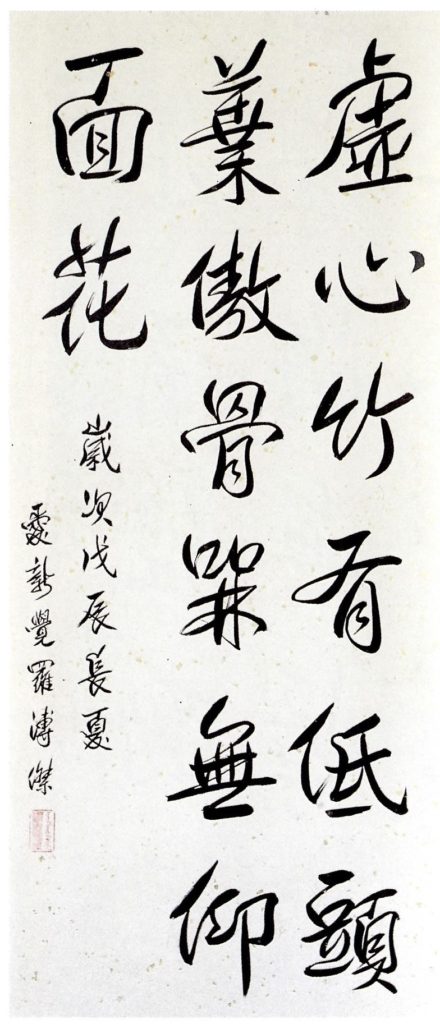 虛心竹有低頭
葉傲骨槑無仰
面花
歲次戊辰長夏
愛新覺羅溥傑